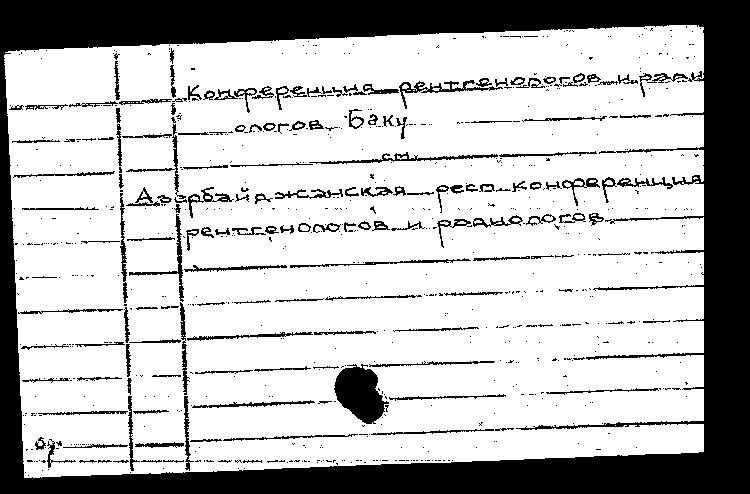 Конференция рентгенологов и ради
ологов. Баку
см.
Азербайджанская респ. конференция
рентгенологов и радиологов.